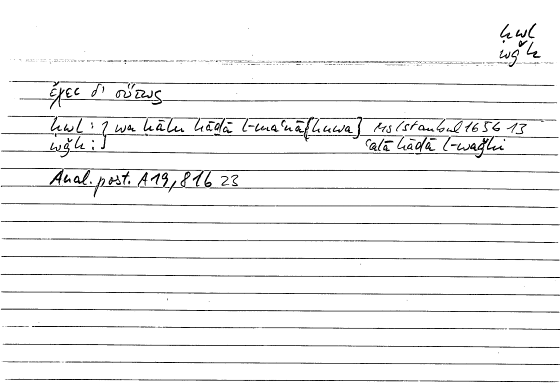 ḥwl
wǧh
ἔχει δ' οὕτως
ḥwl : } wa ḥālu hāḏā l-maʿnā {huwa} Ms Istanbul 165b 13
wǧh : } ʿalā hāḏā l-waǧhi
Anal. post. A19, 81b 23